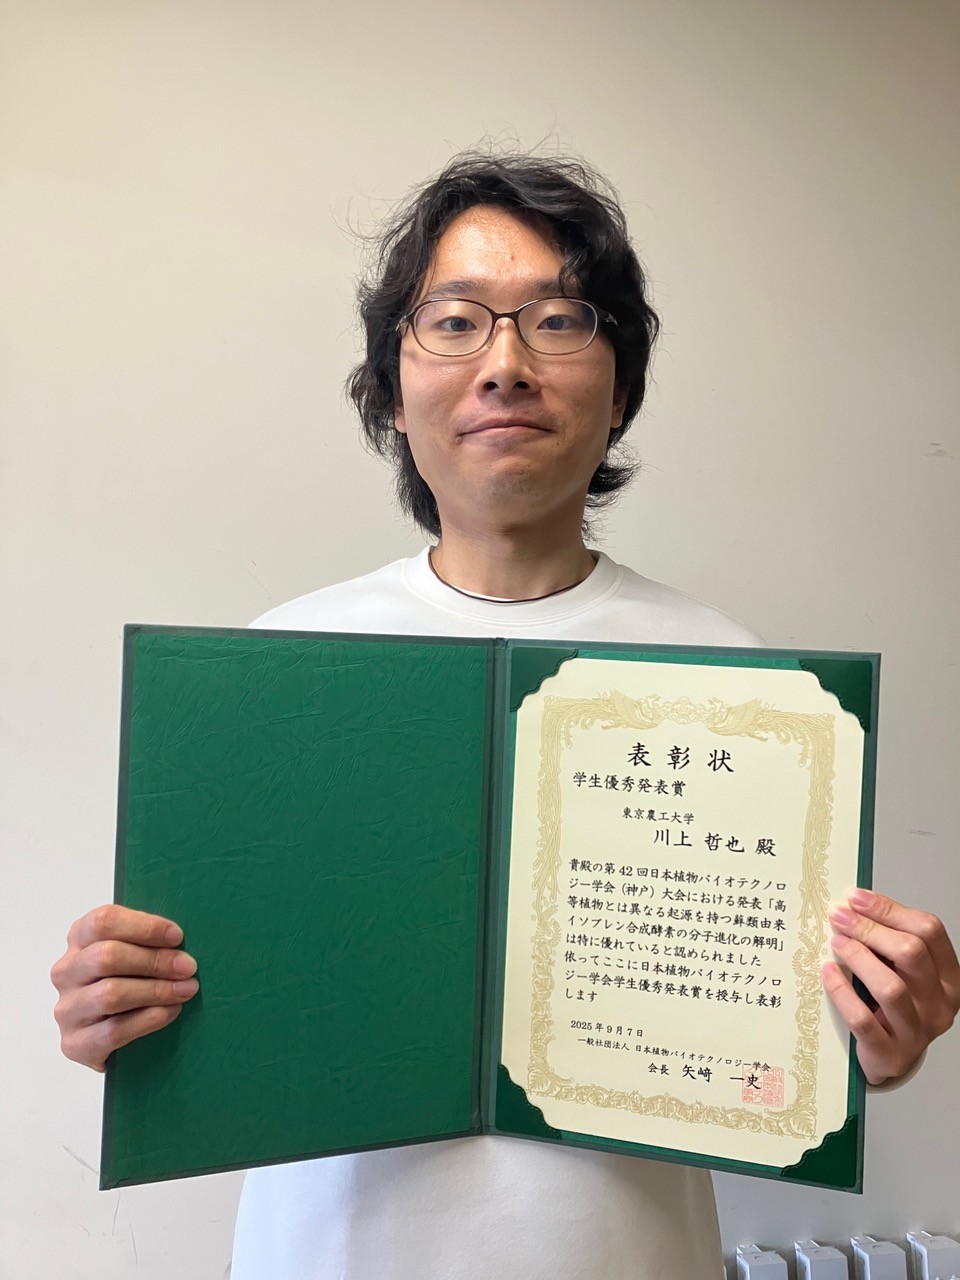 表彰状
学生優秀発表賞
東京農工大学
川上 哲也 殿
貴殿の第42回日本植物バイオテクノロ
ジー学会（神戸）大会における発表「高
等植物とは異なる起源を持つ蘚類由来
イソプレン合成酵素の分子進化の解明」
は特に優れていると認められました
依ってここに日本植物バイオテクノロ
ジー学会学生優秀発表賞を授与し表彰
します
2025年9月7日
一般社団法人 日本植物バイオテクノロジー学会
会長 矢﨑 一史